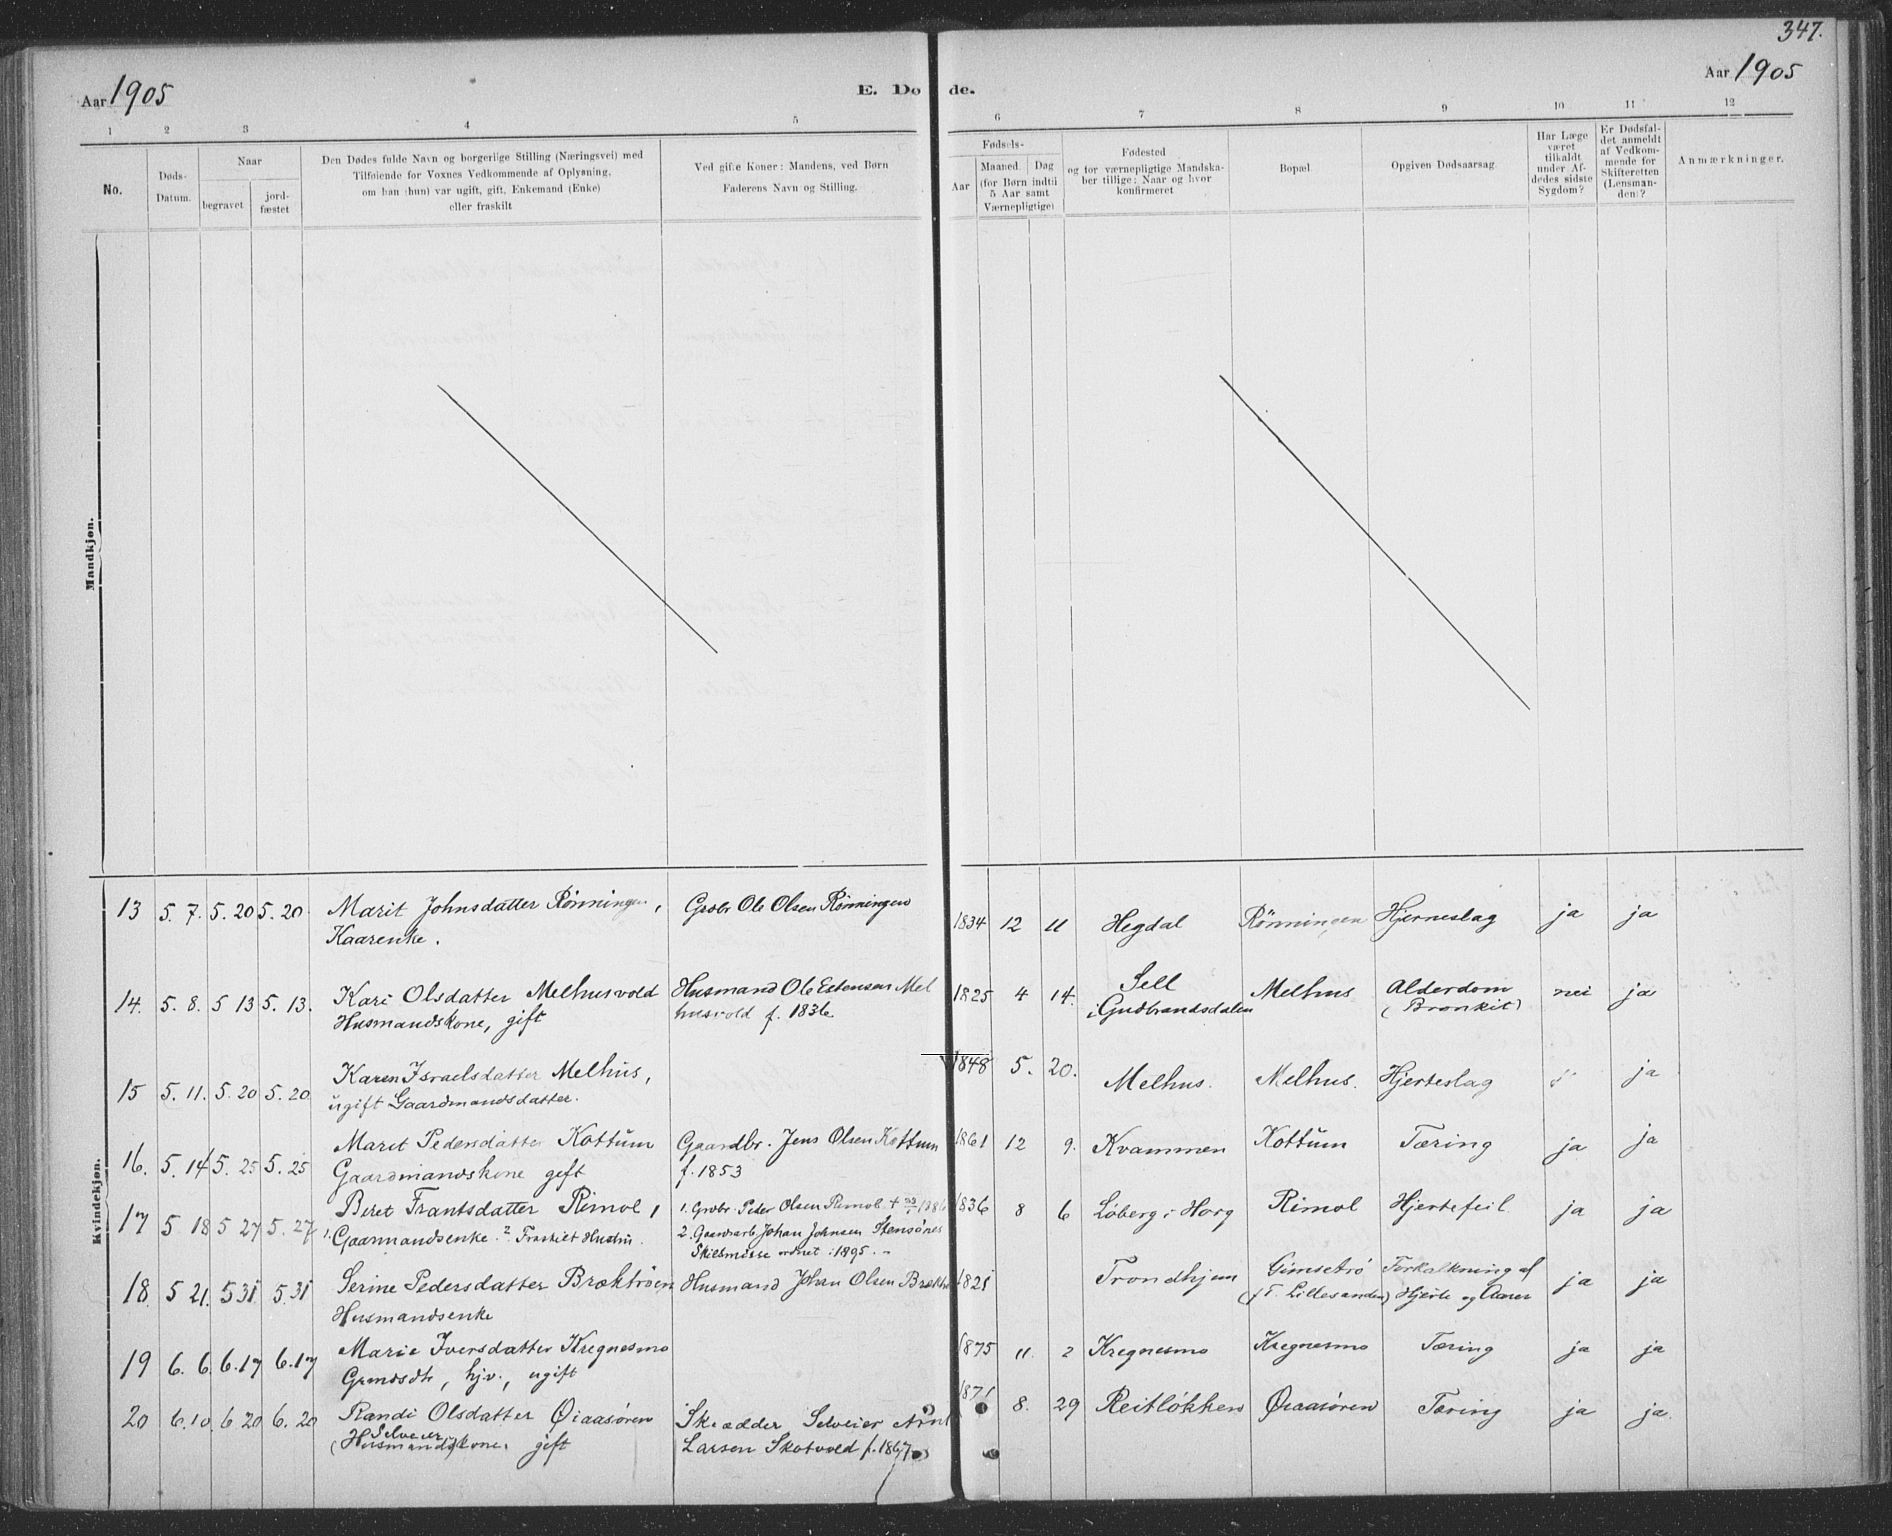 347.
Aar 1905
E. Dø de.
Aar 1905
1 2 3 4 5 6 7 8 9 10 11 12
No.
Døds-
Datum.
Naar
begravet
jord-
fæstet
Den Dødes fulde Navn og borgerlige Stilling (Næringsvei) med
Tilføiende for Voxnes Vedkommende af Oplysning,
om han (hun) var ugift, gift, Enkemand (Enke)
eller fraskilt
Ved gifte Koner: Mandens, ved Børn
Faderens Navn og Stilling.
Fødsels-
Aar
Maaned. Dag
(for Børn indtil
5 Aar samt
Værnepligtige)
Fødested
og for værnepligtige Mandska-
ber tillige: Naar og hvor
konfirmeret
Bopæl.
Opgiven Dødsaarsag.
Har Læge
været
tilkaldt
under Af-
dødes sidste
Sygdom?
Er Dødsfal-
det anmeldt
af Vedkom-
mende for
Skifteretten
(Lensman-
den)?
Anmærkninger.
Mandkjøn.
Kvindekjøn.
13 5. 7. 5. 20 5. 20. Marit Johnsdatter Rönningen, Grobr Ole Olsen Rönningen 1834 12 11 Hegdal Rönningen Hjerneslag ja ja
Kaarenke.
14. 5. 8. 5 13 5. 13. Kari Olsdatter Melhusvold Husmand Ole Estensen Mel 1825 4 14. Sell Melhus Alderdom nei ja
Husmandskone, gift husvold f. 1836 i Gudbrandsdalen (Bronkit)
15 5. 11. 5. 20 5. 20 Karen Israelsdatter Melhus, 1848 5. 20. Melhus. Melhus. Hjerteslag ja
ugift Gaardmandsdatter.
16. 5. 14 5. 25 5. 25 Marit Pedersdatter Kottum Gaardbr. Jens Olsen Kottum 1861 12 9. Kvammen Kottum Tæring ja ja
Gaardmandskone gift f. 1853
17 5 18 5 27 5. 27 Beret Frantsdatter Rimol, 1. Grobr. Peder Olsen Rimol + 1836 8 6 Löberg i Horg Rimol Hjertefeil ja ja
1. Gaarmandsenke. 2. Fraskilt Hustru. 2. Gaardsarb Johan Johnsen Stensönes
Skilsmisse ordnet i 1895. -
18. 5 21. 5 31. 5. 31 Serine Pedersdatter Bræktröen Husmand Johan Olsen Brækt 1821 Trondhjem Gimsetrö Forkalkning af ja ja
Husmandsenke (f. T. Lillesanden) Hjerte og Aarer
19 6. 6. 6. 17 6. 17 Marie Iversdatter Kregnesmo 1875 11. 2 Kregnesmo Kregnesmo Tæring ja ja
hjv., ugift
20 6. 10. 6 20 6. 20 Randi Olsdatter Øiaasøren Skrædder Selveier 1871 8. 29 Reitlökken Øiaasøren Tæring ja ja.
Selveier
(Husmands)kone, gift Larsen Skotvold f. 1867